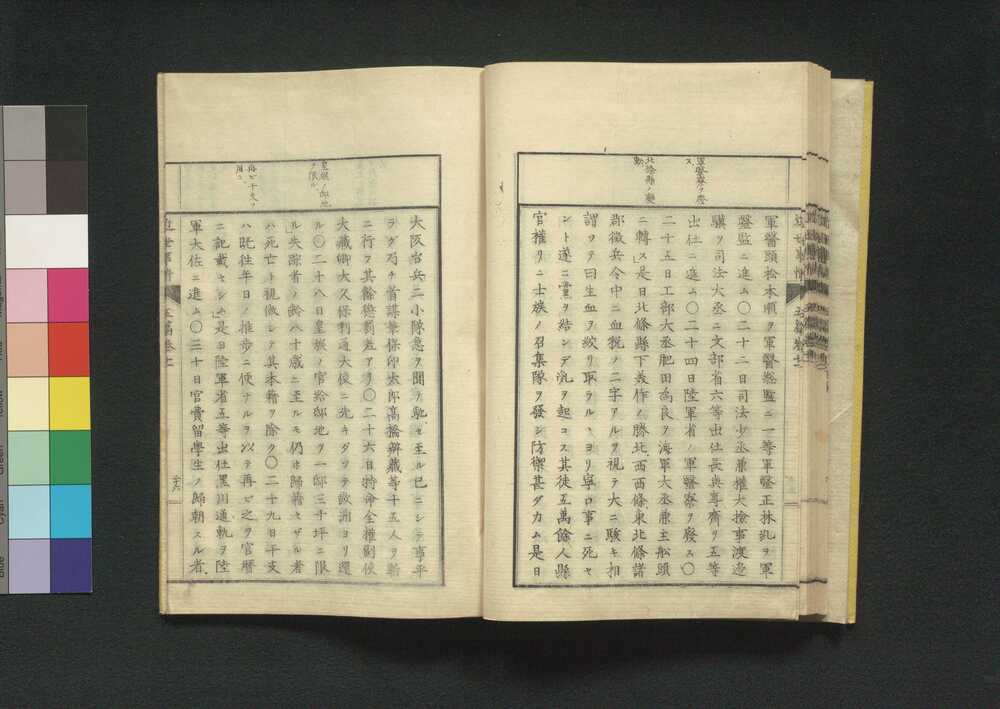 軍醫寮ヲ廢
ス
北條縣ノ變
動
軍醫頭松本順ヲ軍醫總監ニ一等軍醫正林紀ヲ軍
醫監ニ進ム〇二十二日司法少丞兼權大撿事渡邉
驥ヲ司法大丞ニ文部省六等出仕長與專齊ヲ五等
出仕ニ進ム〇二十四日陸軍省ノ軍醫寮ヲ廢ス〇
二十五日工部大丞肥田為良ヲ海軍大丞兼主船頭
ニ轉ス是日北條縣下美作ノ勝北西西條東北條諸
郡徴兵令中ニ血税ノ二字アルヲ視テ大ニ駭キ相
謂ツテ曰生血ヲ絞リ取ラルヽヨリ寧ロ事ニ死セ
ント遂ニ黨ヲ結ンデ乱ヲ起コス其徒五萬餘人縣
官權リニ士族ノ召集隊ヲ發シ防禦甚ダカム是日
近世事情
五篇卷十一
皇族ノ邸地
ヲ限ル
再ビ干支ヲ
用ユ
大阪台兵二小隊急ヲ聞テ馳セ至ル已ニシテ事平
ラグ乃チ首謀筆保卯太郎髙橋辨藏等十五人ヲ斬
ニ行ヲ其餘懲罰差アリ〇二十六日特命全權副使
大藏卿大久保利通大使ニ先キダツテ歐洲ヨリ還
ル〇二十八日皇族ノ官給邸地ヲ一邸三千坪ニ限
ル失踪者ノ齢八十歳ニ至ルモ仍ホ歸籍セザル者
ハ死亡ト視做シテ其本籍ヲ除ク〇二十九日干支
ハ既往年日ノ推歩ニ便ナルヲ以テ再ビ之ヲ官暦
ニ記載セシム是日陸軍省五等出仕黑川通軌ヲ陸
軍大佐ニ進ム〇三十日官費留學生ノ歸朝スル者
近世事情
五篇卷十一
十六